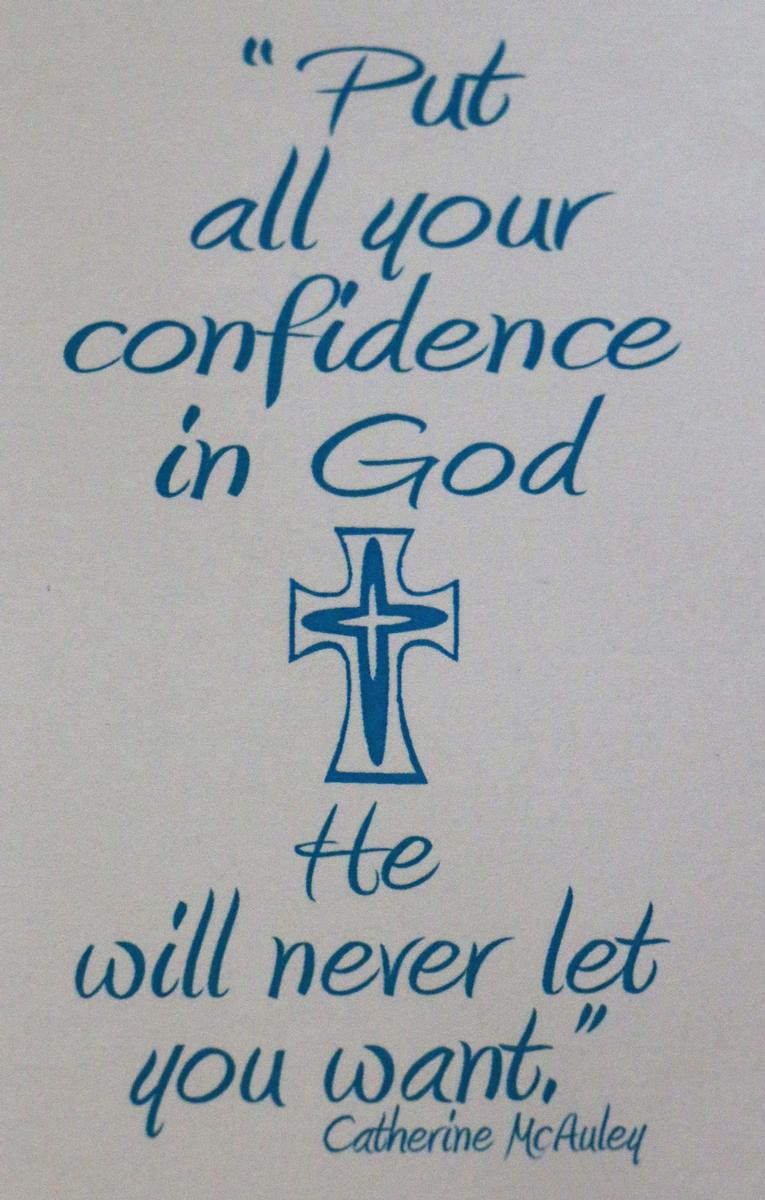 “Put
all your
confidence
in God
He
will never let
you want.”
Catherine McAuley